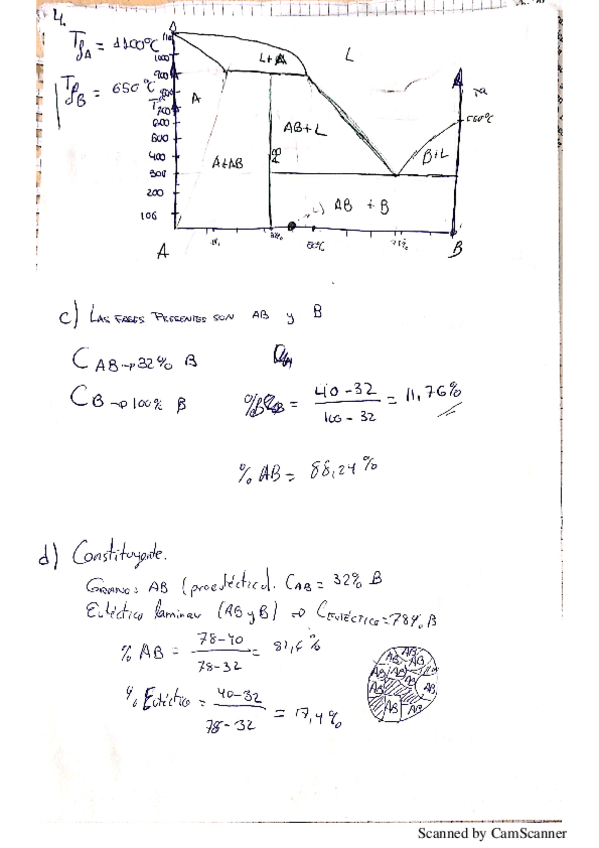 4.
TfA = 1100°C
TfB = 650°C
L
L+A
A
AB+L
B+L
A+AB
AB + B
1000
900
600
400
300
200
100
A
B
c) LAS FASES PRESENTES SON AB y B
C AB→32% B
C B→100% B
= 40-32 / 100-32 = 11,76%
% AB = 88,24%
d) Constituyente.
GRANO: AB (proeutéctico). CAB = 32% B
Eutéctico laminar (AB y B) ⇒ CEUTÉCTICO=78% B
% AB = 78-40 / 78-32 = 82,6%
% Eutéctico = 40-32 / 78-32 = 17,4%
AB
AB
AB
AB
AB
AB
AB
AB
AB
AB
Scanned by CamScanner